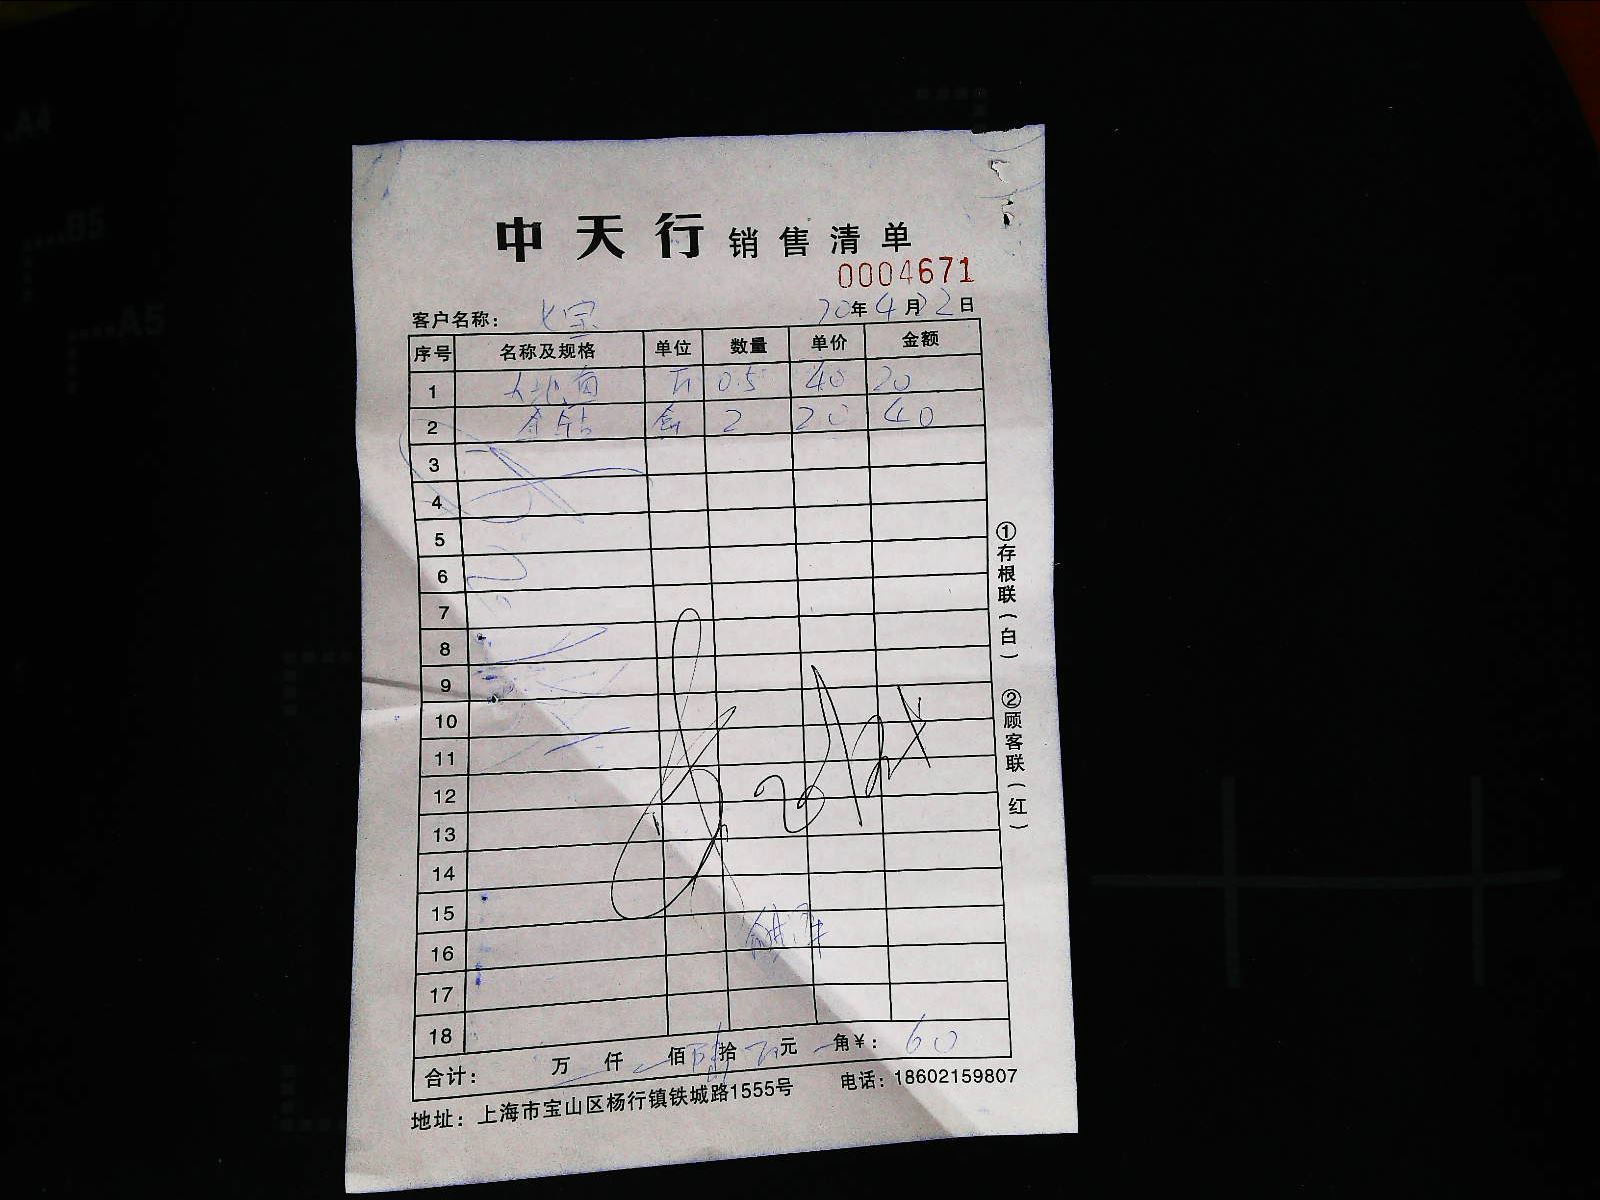 中天行 销售清单
0004671
客户名称： 20年4月22日
序号 名称及规格 单位 数量 单价 金额
1 0.5 40 20
2 金钻 盒 2 20 40
3
4
5
6
7
8
9
10
11
12
13
14
15
16
17
18
合计： 万 仟 佰 陆拾 元 角￥： 60
地址：上海市宝山区杨行镇铁城路1555号 电话：18602159807
①存根联（白） ②顾客联（红）
A4
B5
A5